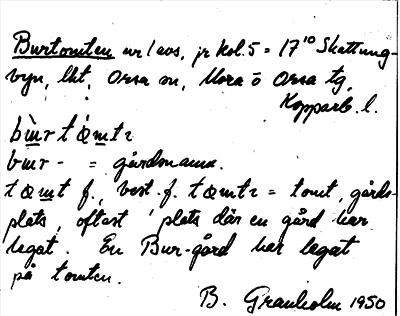 Burtomten nr 1 avs, jr kol. 5 = 17¹⁰ Skattung-
byn, lkt, Orsa sn, Mora o Orsa tg,
Kopparb. l.
bɯrtœmtɛ
bɯr- = gårdsnamn.
tœmt f., best. f. tœmtɛ = tomt, gårds-
plats, oftast plats där en gård har
legat. En Bur-gård har legat
på tomten.
B. Granholm 1950